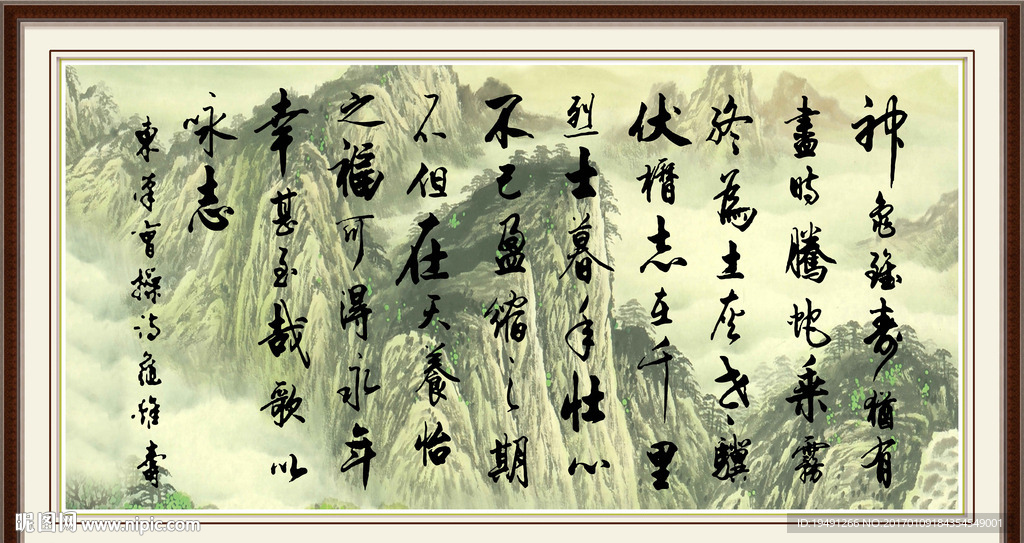 神龜雖壽猶有
盡時騰蛇乘霧
終為土灰老驥
伏櫪志在千里
烈士暮年壯心
不已盈縮之期
不但在天養怡
之福可得永年
幸甚至哉歌以
咏志
東漢曹操詩龜雖壽
昵图网 www.nipic.com
ID:19491266 NO:20170109184354549001